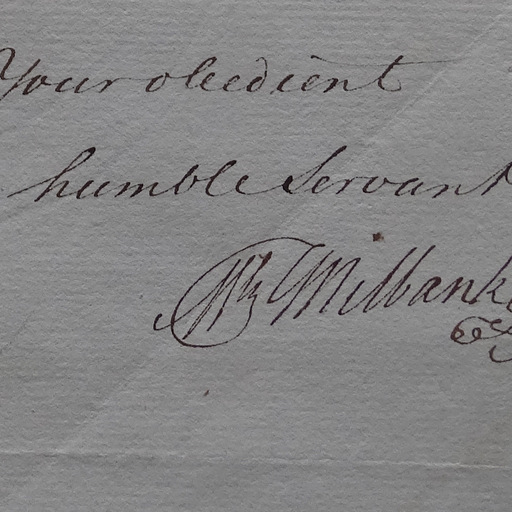 Your obedient
humble Servant
Milbank